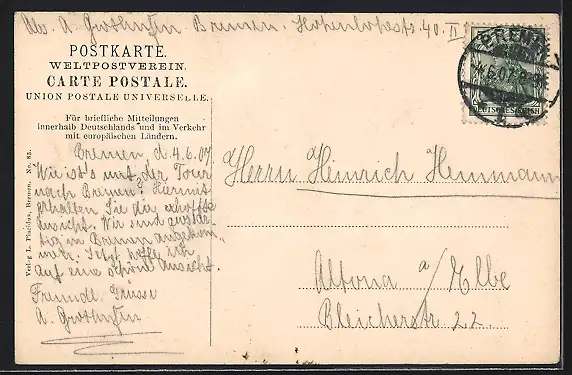 Abs. A. Grothusen Bremen. Hohenlohestr. 40. II
POSTKARTE.
WELTPOSTVEREIN.
CARTE POSTALE.
UNION POSTALE UNIVERSELLE.
Für briefliche Mitteilungen
innerhalb Deutschlands und im Verkehr
mit europäischen Ländern.
BREMEN
4.6.07
DEUTSCHES REICH
Bremen d. 4.6.07
Wie ist's mit der Tour
nach Bremen? Hiermit
erhalten Sie die erhoffte
Ansicht. Wir sind
in Bremen angekom-
men. Jetzt hoffe ich
auf eine schöne Ansicht.
Freundl. Grüsse
A. Grothusen
Herrn Heinrich Heinmann
Altona a/Elbe
Bleicherstr. 22.
Verlag L. Placidus, Bremen. No. 83.